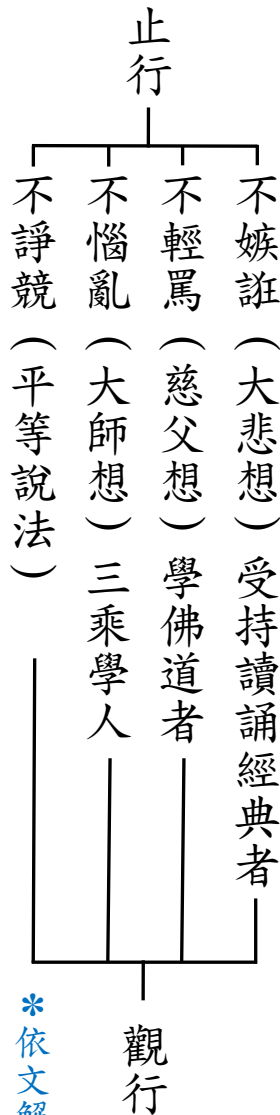 止行
不嫉誑（大悲想）受持讀誦經典者
不輕罵（慈父想）學佛道者
不惱亂（大師想）三乘學人
不諍競（平等說法）
觀行
*依文解